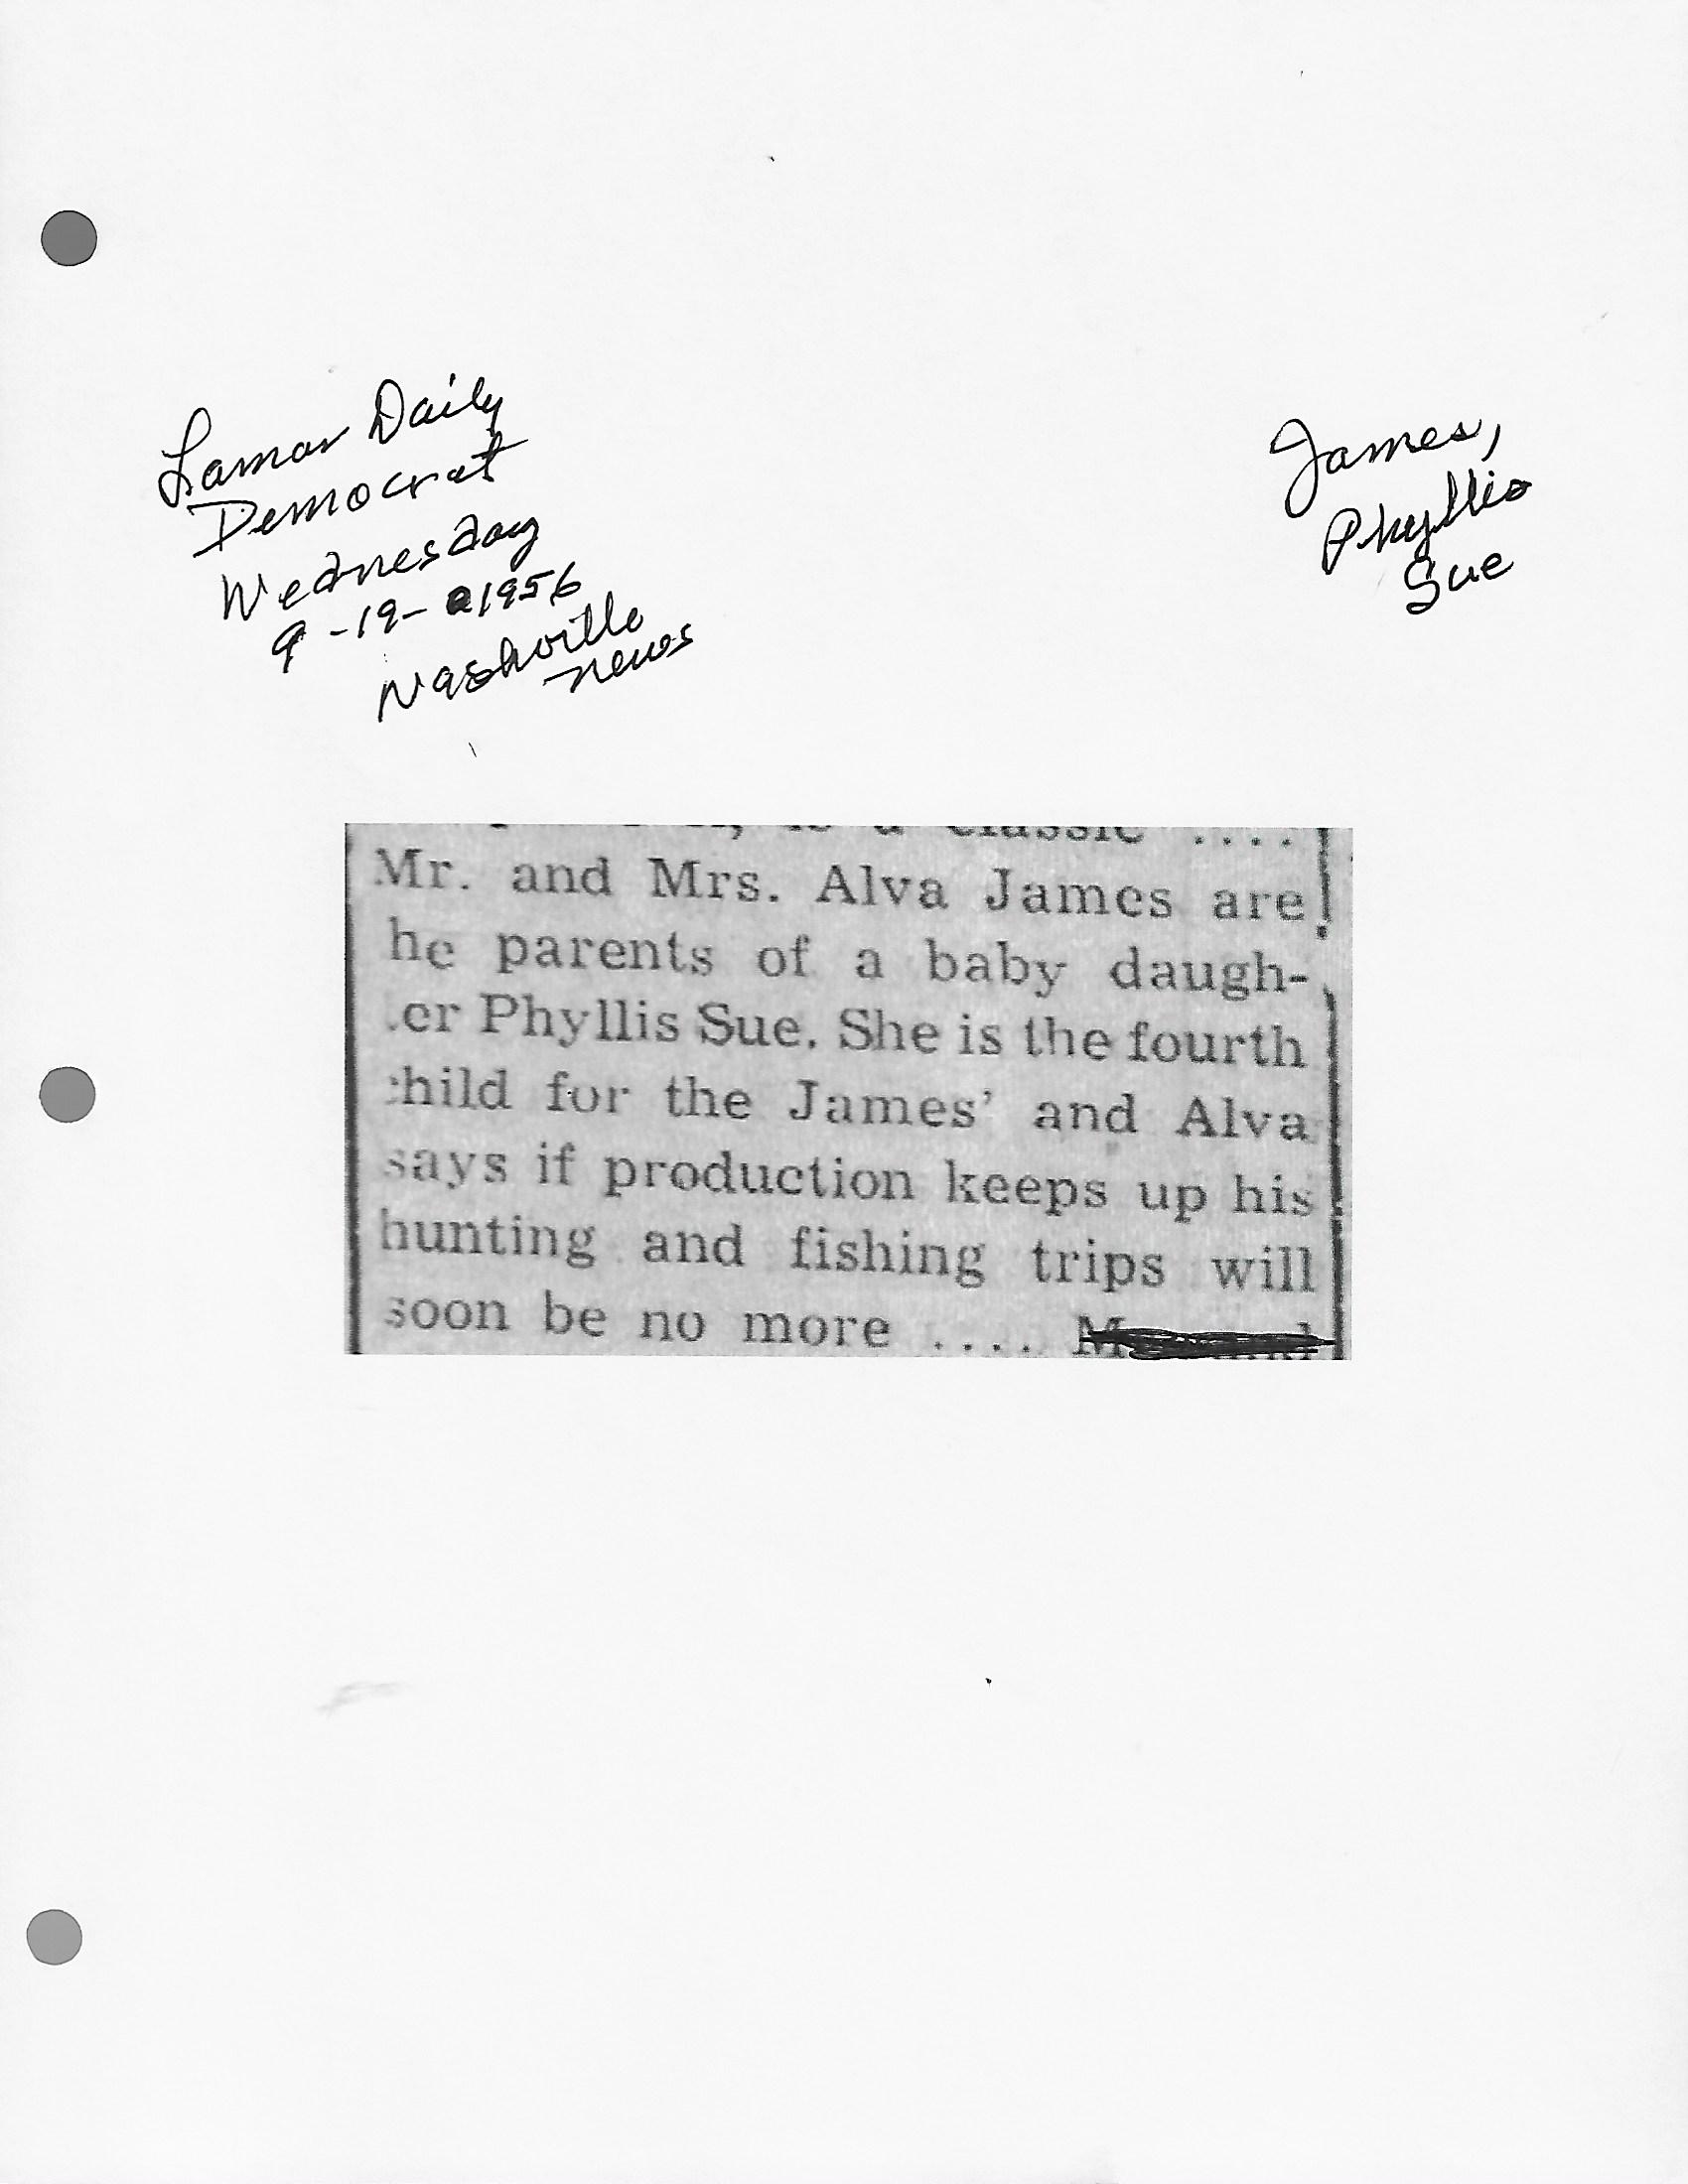 Lamar Daily
Democrat
Wednesday
9-19-1956
Nashville
news
James,
Phyllis
Sue
is a classic ....
Mr. and Mrs. Alva James are
he parents of a baby daugh-
er Phyllis Sue. She is the fourth
hild for the James' and Alva
says if production keeps up his
hunting and fishing trips will
soon be no more ....